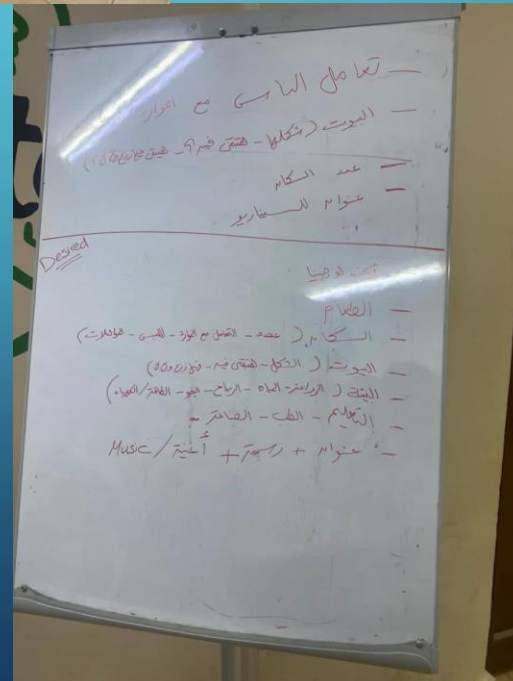 — تعامل الناس مع الموارد
— البيوت (شكلها - هتبقى فين؟ -
— عدد السكان
— عنوان للسيناريو
Desired
— الطعام
— السكان (عدد - التعامل مع الموارد - اللبس - مواصلات)
— البيوت (الشكل - هتبقى فين -
— البيئة (الزراعة - المياه - الرياح - الجو - الطاقة/الكهرباء)
— التعليم - الطب - الصناعة
— عنوان + رسمة + أغنية/Music